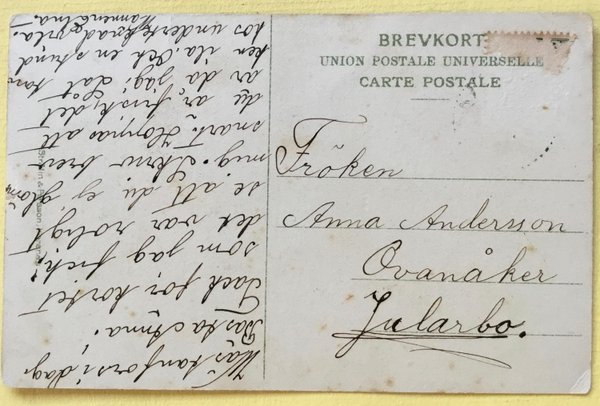 BREVKORT
UNION POSTALE UNIVERSELLE
CARTE POSTALE
Fröken
Anna Andersson
Ovanåker
Jularbo.
Västanfors i dag.
Bästa Anna!
Tack för kortet
som jag fick,
det var roligt
se att du ej glömt
mig. Skriv brev
snart. Hoppas att
du är frisk, det
är då jag. Låt tan
ken ila. Och en stund
hos undertecknad vila.